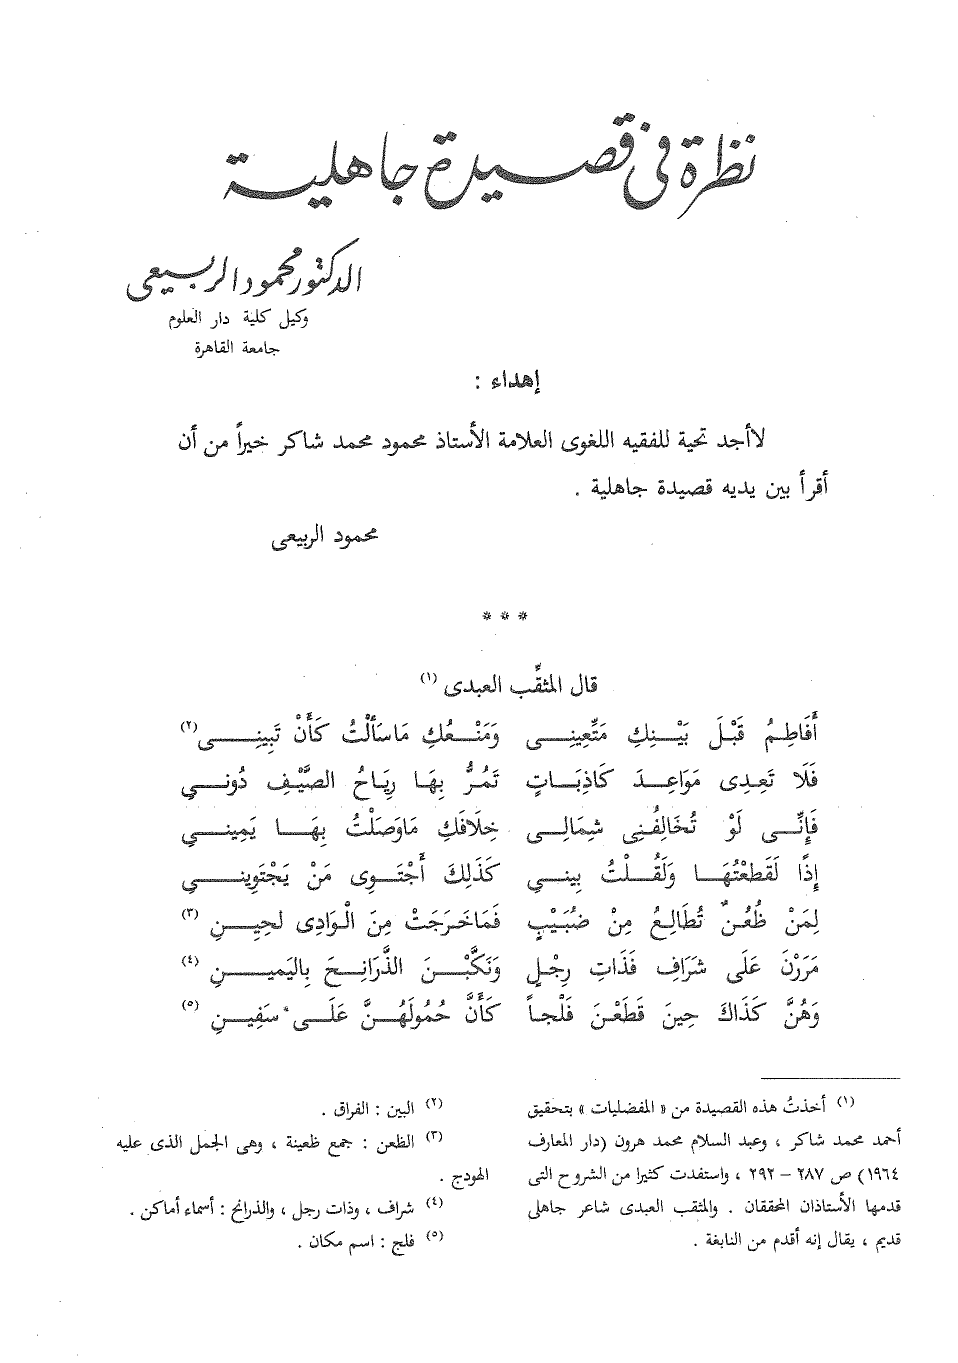 نظرة في قصيدة جاهلية
الدكتور محمود الربيعى
وكيل كلية دار العلوم
جامعة القاهرة
إهداء :
لا أجد تحية للفقيه اللغوى العلامة الأستاذ محمود محمد شاكر خيراً من أن
أقرأ بين يديه قصيدة جاهلية .
محمود الربيعى
* * *
قال المثقِّب العبدى (١)
أَفَاطِمُ قَبْلَ بَيْنِكِ مَتِّعِينِى وَمَنْعُكِ مَا سَأَلْتُ كَأَنْ تَبِينِى (٢)
فَلَا تَعِدِى مَوَاعِدَ كَاذِبَاتٍ تَمُرُّ بِهَا رِيَاحُ الصَّيْفِ دُونِي
فَإِنِّى لَوْ تُخَالِفُنِى شِمَالِى خِلَافَكِ مَا وَصَلْتُ بِهَا يَمِينِي
إِذًا لَقَطَعْتُهَا وَلَقُلْتُ بِينِي كَذَلِكَ أَجْتَوِى مَنْ يَجْتَوِينِي
لِمَنْ ظُعُنٌ تُطَالِعُ مِنْ ضُبَيْبٍ فَمَا خَرَجَتْ مِنَ الْوَادِى لحِينِ (٣)
مَرَرْنَ عَلَى شَرَافِ فَذَاتِ رِجْلٍ وَنَكَّبْنَ الذَّرَانِحَ بِاليَمِينِ (٤)
وَهُنَّ كَذَاكَ حِينَ قَطَعْنَ فَلْجاً كَأَنَّ حُمُولَهُنَّ عَلَى سَفِينِ (٥)
(١) أخذتُ هذه القصيدة من « المفضليات » بتحقيق
أحمد محمد شاكر ، وعبد السلام محمد هرون (دار المعارف
١٩٦٤) ص ٢٨٧ – ٢٩٢ ، واستفدت كثيرا من الشروح التى
قدمها الأستاذان المحققان . والمثقب العبدى شاعر جاهلى
قديم ، يقال إنه أقدم من النابغة .
(٢) البين : الفراق .
(٣) الظعن : جمع ظعينة ، وهى الجمل الذى عليه
الهودج .
(٤) شراف ، وذات رجل ، والذرانح : أسماء أماكن .
(٥) فلج : اسم مكان .